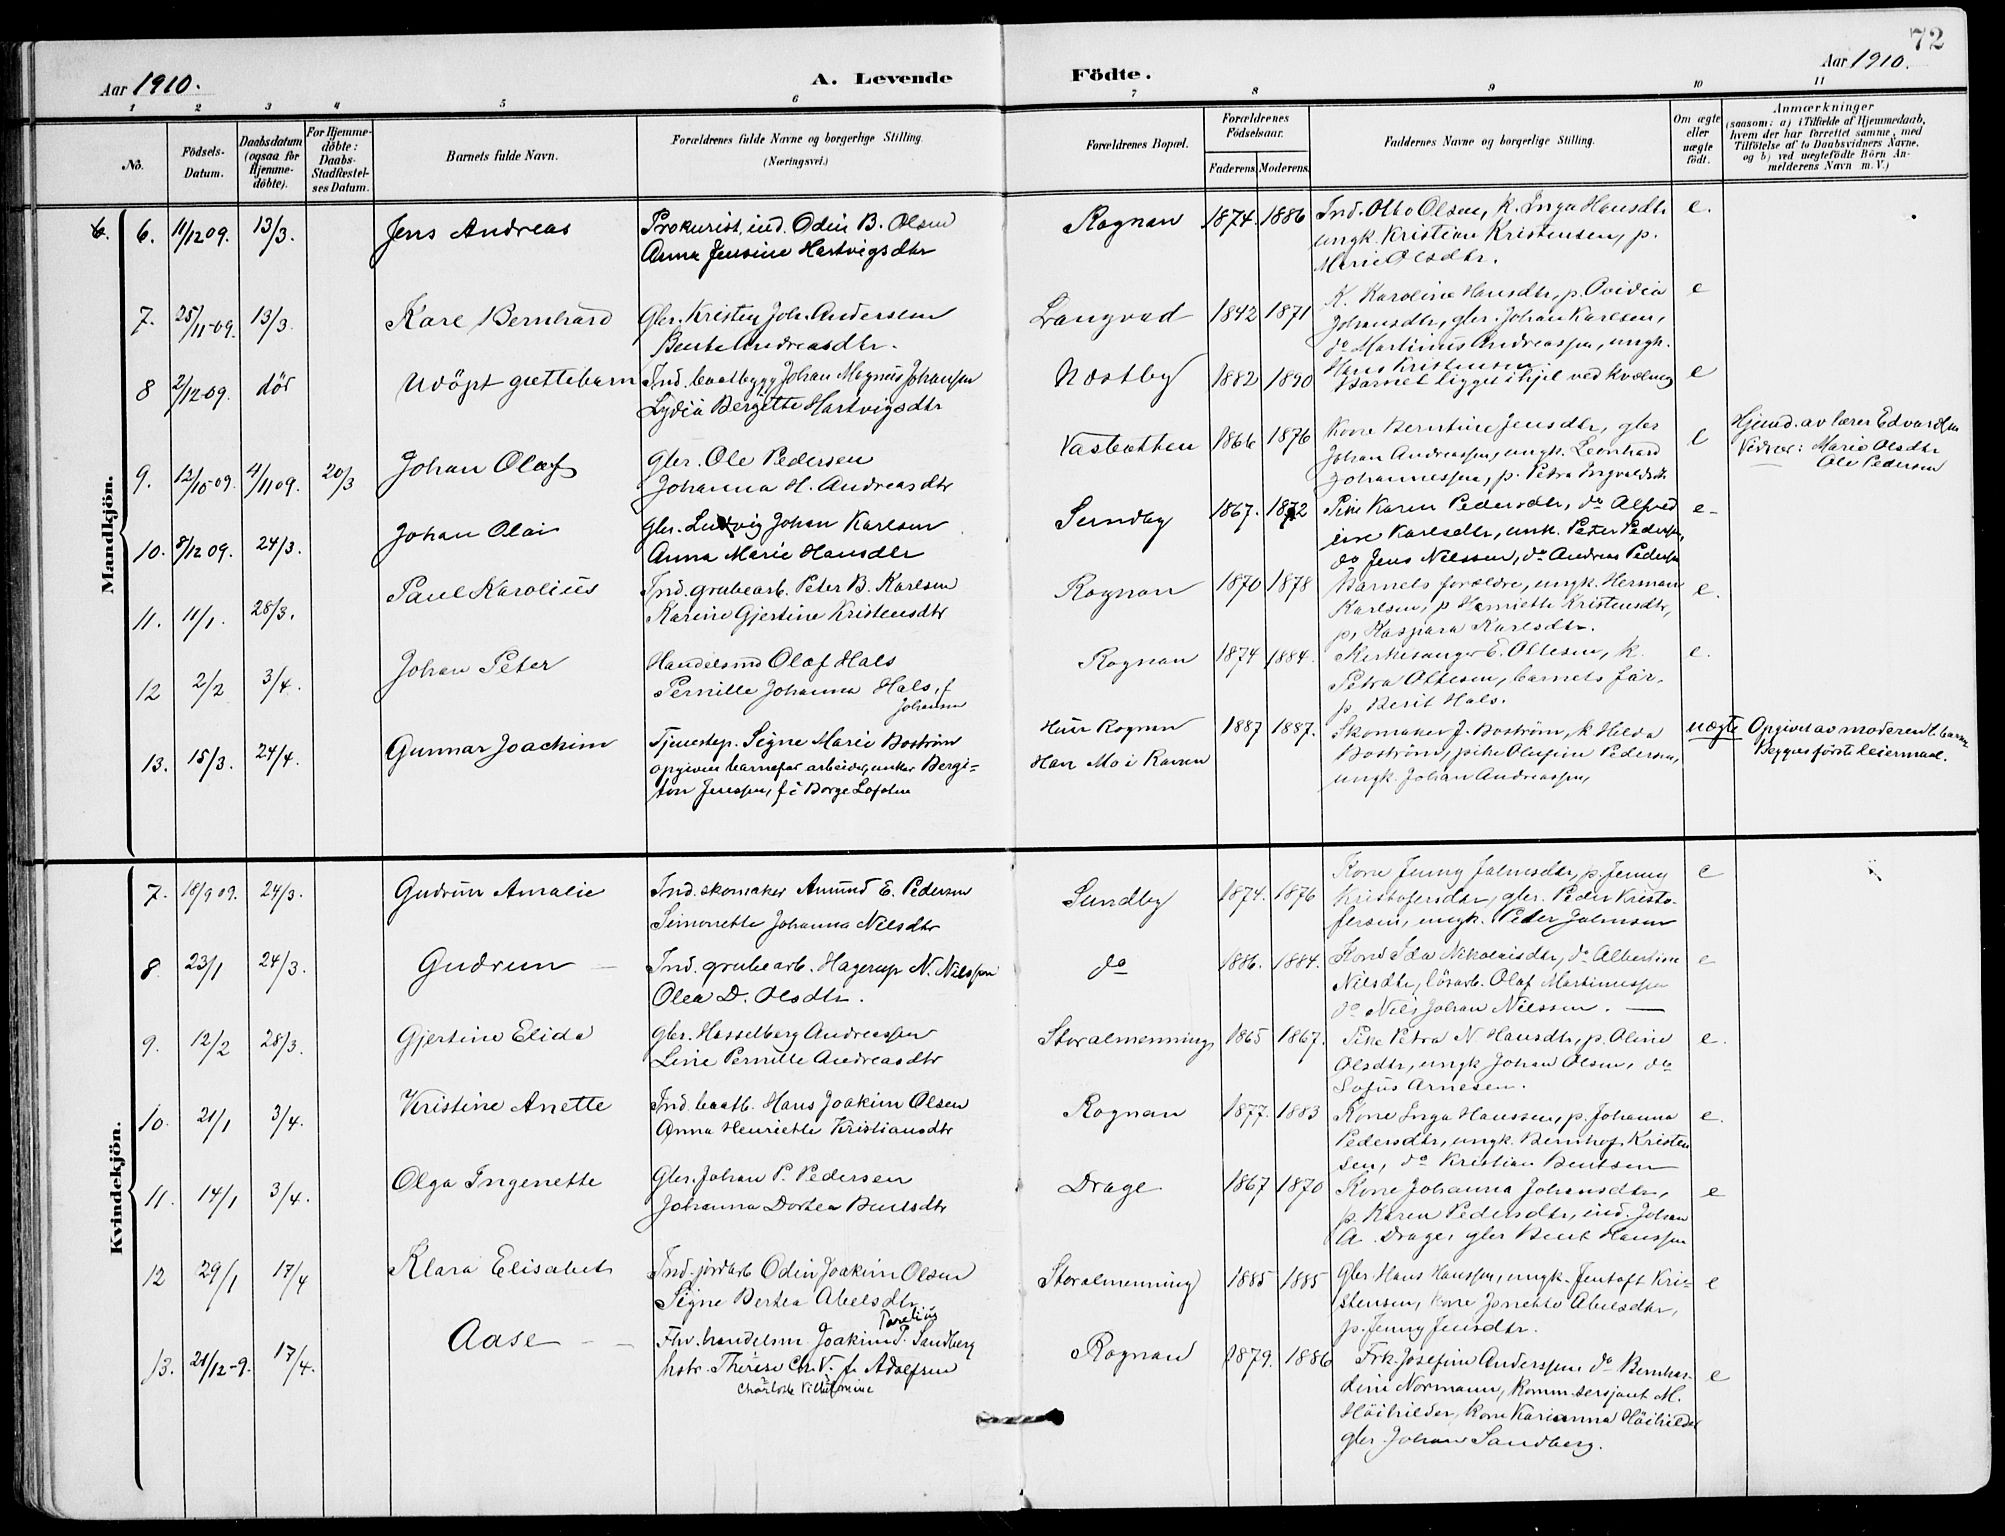 72
Aar 1910.
A. Levende
Födte.
Aar 1910.
1 2 3 4 5 6 7 8 9 10 11
No.
Födsels-Datum.
Daabsdatum (ogsaa for Hjemme-döbte).
For Hjemme-döbte: Daabs-Stadfæstel-ses Datum.
Barnets fulde Navn.
Forældrenes fulde Navne og borgerlige Stilling.
(Næringsvei.)
Forældrenes Bopæl.
Forældrenes Födselsaar.
Faderens. Moderens.
Faddernes Navne og borgerlige Stilling.
Om ægte eller uægte født.
Anmærkninger
(saasom: a) i Tilfælde af Hjemmedaab, hvem der har forrettet samme, med Tilföielse af to Daabsvidners Navne, og b) ved uægtefödte Börn An-melderens Navn m. V.)
Mandkjön.
6. 6. 11/12 09. 13/3. Jens Andreas Prokurist, ind. Odin B. Olsen Rognan 1874. 1886 Ind. Otto Olsen, k. Inga Hansdtr e.
Anna Jensine Hartvigsdtr ungk. Kristian Kristensen, p.
Marie Olsdtr.
7. 25/11-09. 13/3. Kare Bernhard Gbr. Kristen Joh. Andersen Langvad 1842 1871 K. Karoline Hansdtr, p. Ovidia e
Bente Andreasdtr. Johansdtr, gbr. Johan Karlsen,
do Martinus Andreassen, ungk.
Hans Kristensen
8 2/12-09. dör Udöpt guttebarn Ind. baatbygg Johan Magnus Johansen Næstby 1882 1890 Barnet ligget ihjel ved kvælning e
Lydia Bergitte Hartvigsdtr
9. 12/10-09. 4/11 09. 20/3 Johan Olaf Gbr. Ole Pedersen Vasbotten 1866 1876 Kone Berntine Jensdtr, gbr e Hjemd. av lærer Edvardsen
Johanna H. Andreasdtr Johan Andreassen, ungk. Leonhard Vidner: Marie Olsdtr
Johannessen, p. Petra Ingvaldsdtr Ole Pedersen
10. 8/12 09. 24/3. Johan Olai Gbr. Ludvig Johan Karlsen Sundby 1867. 1872 Pike Karen Pedersdtr, do Alfred e-
Anna Marie Hansdtr ine Karlsdtr, unk. Peter Pedersen,
do Jens Nilssen, do Andreas Pedersen
11. 11/1. 28/3. Paul Karolius Ind. grubearb. Peter B. Karlsen Rognan 1870 1878 Barnets forældre, ungk. Herman e.
Karine Gjertine Kristensdtr Karlsen, p Henriette Kristensdtr,
p, Kaspara Karlsdtr.
12 2/2 3/4. Johan Peter Handelsmd Olaf Hals Rognan 1874 1884. Kirkesanger E. Ottesen, k. e.
Pernille Johanna Hals, f Petra Ottesen, barnets far,
Johansen p. Berit Hals.
13. 15/3. 24/4. Gunnar Joachim Tjenestep. Signe Marie Boström Hun Rognan 1887 1887. Skomaker J. Boström, k. Hilda uægte Opgivet av moderen t. barn
opgiven barnefar arbeider, unkar Bergi- Han Mo i Ranen Boström, pike Olufine Pedersen, Begges först leiermaal.
ton Jenssen, f i Borge Lofoten ungk. Johan Andreassen,
Kvindekjön.
7. 18/9 09. 24/3. Gudrun Amalie Ind. skomaker Amund E. Pedersen Sundby 1874. 1876 Kone Jenny Johnsdtr, p. Jenny e
Simonette Johanna Nilsdtr Kristofersdtr, gbr. Peder Kristo-
fersen, ungk. Peder Johnsen
8. 23/1 24/3. Gudrun — Ind. grubearb. Hagerup N. Nilssen do 1886. 1884. Kone Ida Nikolaisdtr, do Albertine e
Olea D. Olsdtr. Nilsdtr, lösarb. Olaf Martinussen
do Nils Johan Nilssen. —
9. 12/2 28/3. Gjertine Elida Gbr. Hasselberg Andreassen Storalmenning 1865 1867. Pike Petra N. Hansdtr, p. Oline e.
Line Pernille Andreasdtr Olsdtr, ungk Johan Olsen, do
Lofus Arnesen.
10. 21/1 3/4. Kristine Anette Ind. baatb. Hans Joakim Olsen Rognan 1877. 1883 Kone Inga Hanssen, p. Johanna e.
Anna Henriette Kristiansdtr Pedersdtr, ungk. Bernhof Kristen
sen, do Kristian Bentsen
11. 14/1 3/4. Olga Ingenette Gbr. Johan P. Pedersen Drage 1867 1870 Kone Johanna Johansdtr, e
Johanna Dortea Bentsdtr p. Karen Pedersdtr, ind. Johan
A. Drage, gbr Bent Hanssen
12 29/1 17/4 Klara Elisabet Ind. jordarb Odin Joakim Olsen Storalmenning 1885 1885 Gbr. Hans Hanssen, ungk. Jentoft Kri- e
Signe Bertea Abelsdtr stensen, kone Jonette Abelsdtr,
p. Jenny Jensdtr.
13. 21/12-9. 17/4. Aase — Fhv. handelsm. Joakim P. Sandberg Rognan 1879. 1886 Frk. Josefine Anderssen do Bernhar- e
Parelius
hstr. Therese Chr. V. f. Adolfsen dine Normann, Komm. sersjant M.
Charlotte Vilhelmine Höihilder, kone Karianna Höihilder
gbr. Johan Sandberg.